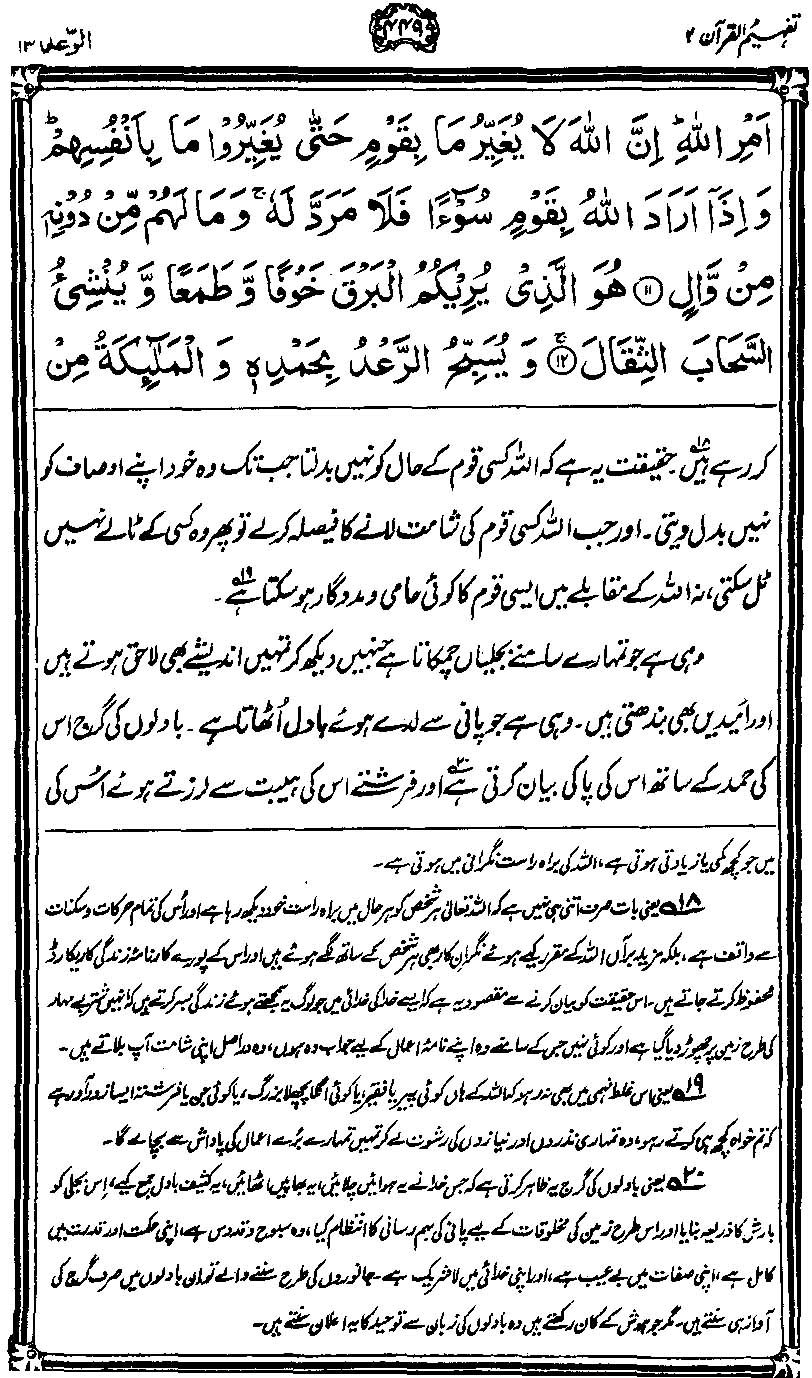 تفہیم القرآن ۲
۴۴۹
الرعد ۱۳
اَمۡرِ اللّٰهِ‌ؕ اِنَّ اللّٰهَ لَا يُغَيِّرُ مَا بِقَوۡمٍ حَتّٰى يُغَيِّرُوۡا مَا بِاَنۡفُسِهِمۡ‌ؕ
وَاِذَاۤ اَرَادَ اللّٰهُ بِقَوۡمٍ سُوۡٓءًا فَلَا مَرَدَّ لَهٗ‌ۚ وَمَا لَهُمۡ مِّنۡ دُوۡنِهٖ
مِنۡ وَّالٍ ۝۱۱ هُوَ الَّذِىۡ يُرِيۡكُمُ الۡبَرۡقَ خَوۡفًا وَّطَمَعًا وَّيُنۡشِئُ
السَّحَابَ الثِّقَالَ‌ۚ‏ ۝۱۲ وَيُسَبِّحُ الرَّعۡدُ بِحَمۡدِهٖ وَالۡمَلٰٓئِكَةُ مِنۡ
کر رہے ہیں۱۸۔ حقیقت یہ ہے کہ اللہ کسی قوم کے حال کو نہیں بدلتا جب تک وہ خود اپنے اوصاف کو
نہیں بدل دیتی۔ اور جب اللہ کسی قوم کی شامت لانے کا فیصلہ کر لے تو پھر وہ کسی کے ٹالے نہیں
ٹل سکتی، نہ اللہ کے مقابلے میں ایسی قوم کا کوئی حامی و مددگار ہو سکتا ہے۱۹۔
وہی ہے جو تمہارے سامنے بجلیاں چمکاتا ہے جنہیں دیکھ کر تمہیں اندیشے بھی لاحق ہوتے ہیں
اور اُمیدیں بھی بندھتی ہیں۔ وہی ہے جو پانی سے لدے ہوئے بادل اُٹھاتا ہے۔ بادلوں کی گرج اس
کی حمد کے ساتھ اس کی پاکی بیان کرتی ہے۲۰ اور فرشتے اس کی ہیبت سے لرزتے ہوئے اُس کی
میں جو کچھ کمی یا زیادتی ہوتی ہے، اللہ کی براہ راست نگرانی میں ہوتی ہے۔
۱۸ یعنی بات صرف اتنی ہی نہیں ہے کہ اللہ تعالیٰ ہر شخص کو ہر حال میں براہ راست خود دیکھ رہا ہے اور اُس کی تمام حرکات و سکنات
سے واقف ہے، بلکہ مزید برآں اللہ کے مقرر کیے ہوئے نگران کار بھی ہر شخص کے ساتھ لگے ہوئے ہیں اور اس کے پورے کارنامۂ زندگی کا ریکارڈ
محفوظ کرتے جاتے ہیں۔ اس حقیقت کو بیان کرنے سے مقصود یہ ہے کہ ایسے خدا کی خدائی میں جو لوگ یہ سمجھتے ہوئے زندگی بسر کرتے ہیں کہ انہیں شتر بے مہار
کی طرح زمین پر چھوڑ دیا گیا ہے اور کوئی نہیں جس کے سامنے وہ اپنے نامۂ اعمال کے لیے جواب دہ ہوں، وہ دراصل اپنی شامت آپ بلاتے ہیں۔
۱۹ یعنی اس غلط فہمی میں بھی نہ رہو کہ اللہ کے ہاں کوئی پیر یا فقیر، یا کوئی اگلا پچھلا بزرگ، یا کوئی جن یا فرشتہ ایسا زور آور ہے
کہ تم خواہ کچھ ہی کرتے رہو، وہ تمہاری نذروں اور نیازوں کی رشوت لے کر تمہیں تمہارے بُرے اعمال کی پاداش سے بچا لے گا۔
۲۰ یعنی بادلوں کی گرج یہ ظاہر کرتی ہے کہ جس خدا نے یہ ہوائیں چلائیں، یہ بھاپیں اٹھائیں، یہ کثیف بادل جمع کیے، اِس بجلی کو
بارش کا ذریعہ بنایا اور اس طرح زمین کی مخلوقات کے لیے پانی کی بہم رسانی کا انتظام کیا، وہ سبوح و قدوس ہے، اپنی حکمت اور قدرت میں
کامل ہے، اپنی صفات میں بے عیب ہے، اور اپنی خدائی میں لاشریک ہے۔ جانوروں کی طرح سننے والے تو ان بادلوں میں صرف گرج کی
آواز ہی سنتے ہیں۔ مگر جو ہوش کے کان رکھتے ہیں وہ بادلوں کی زبان سے توحید کا یہ اعلان سنتے ہیں۔